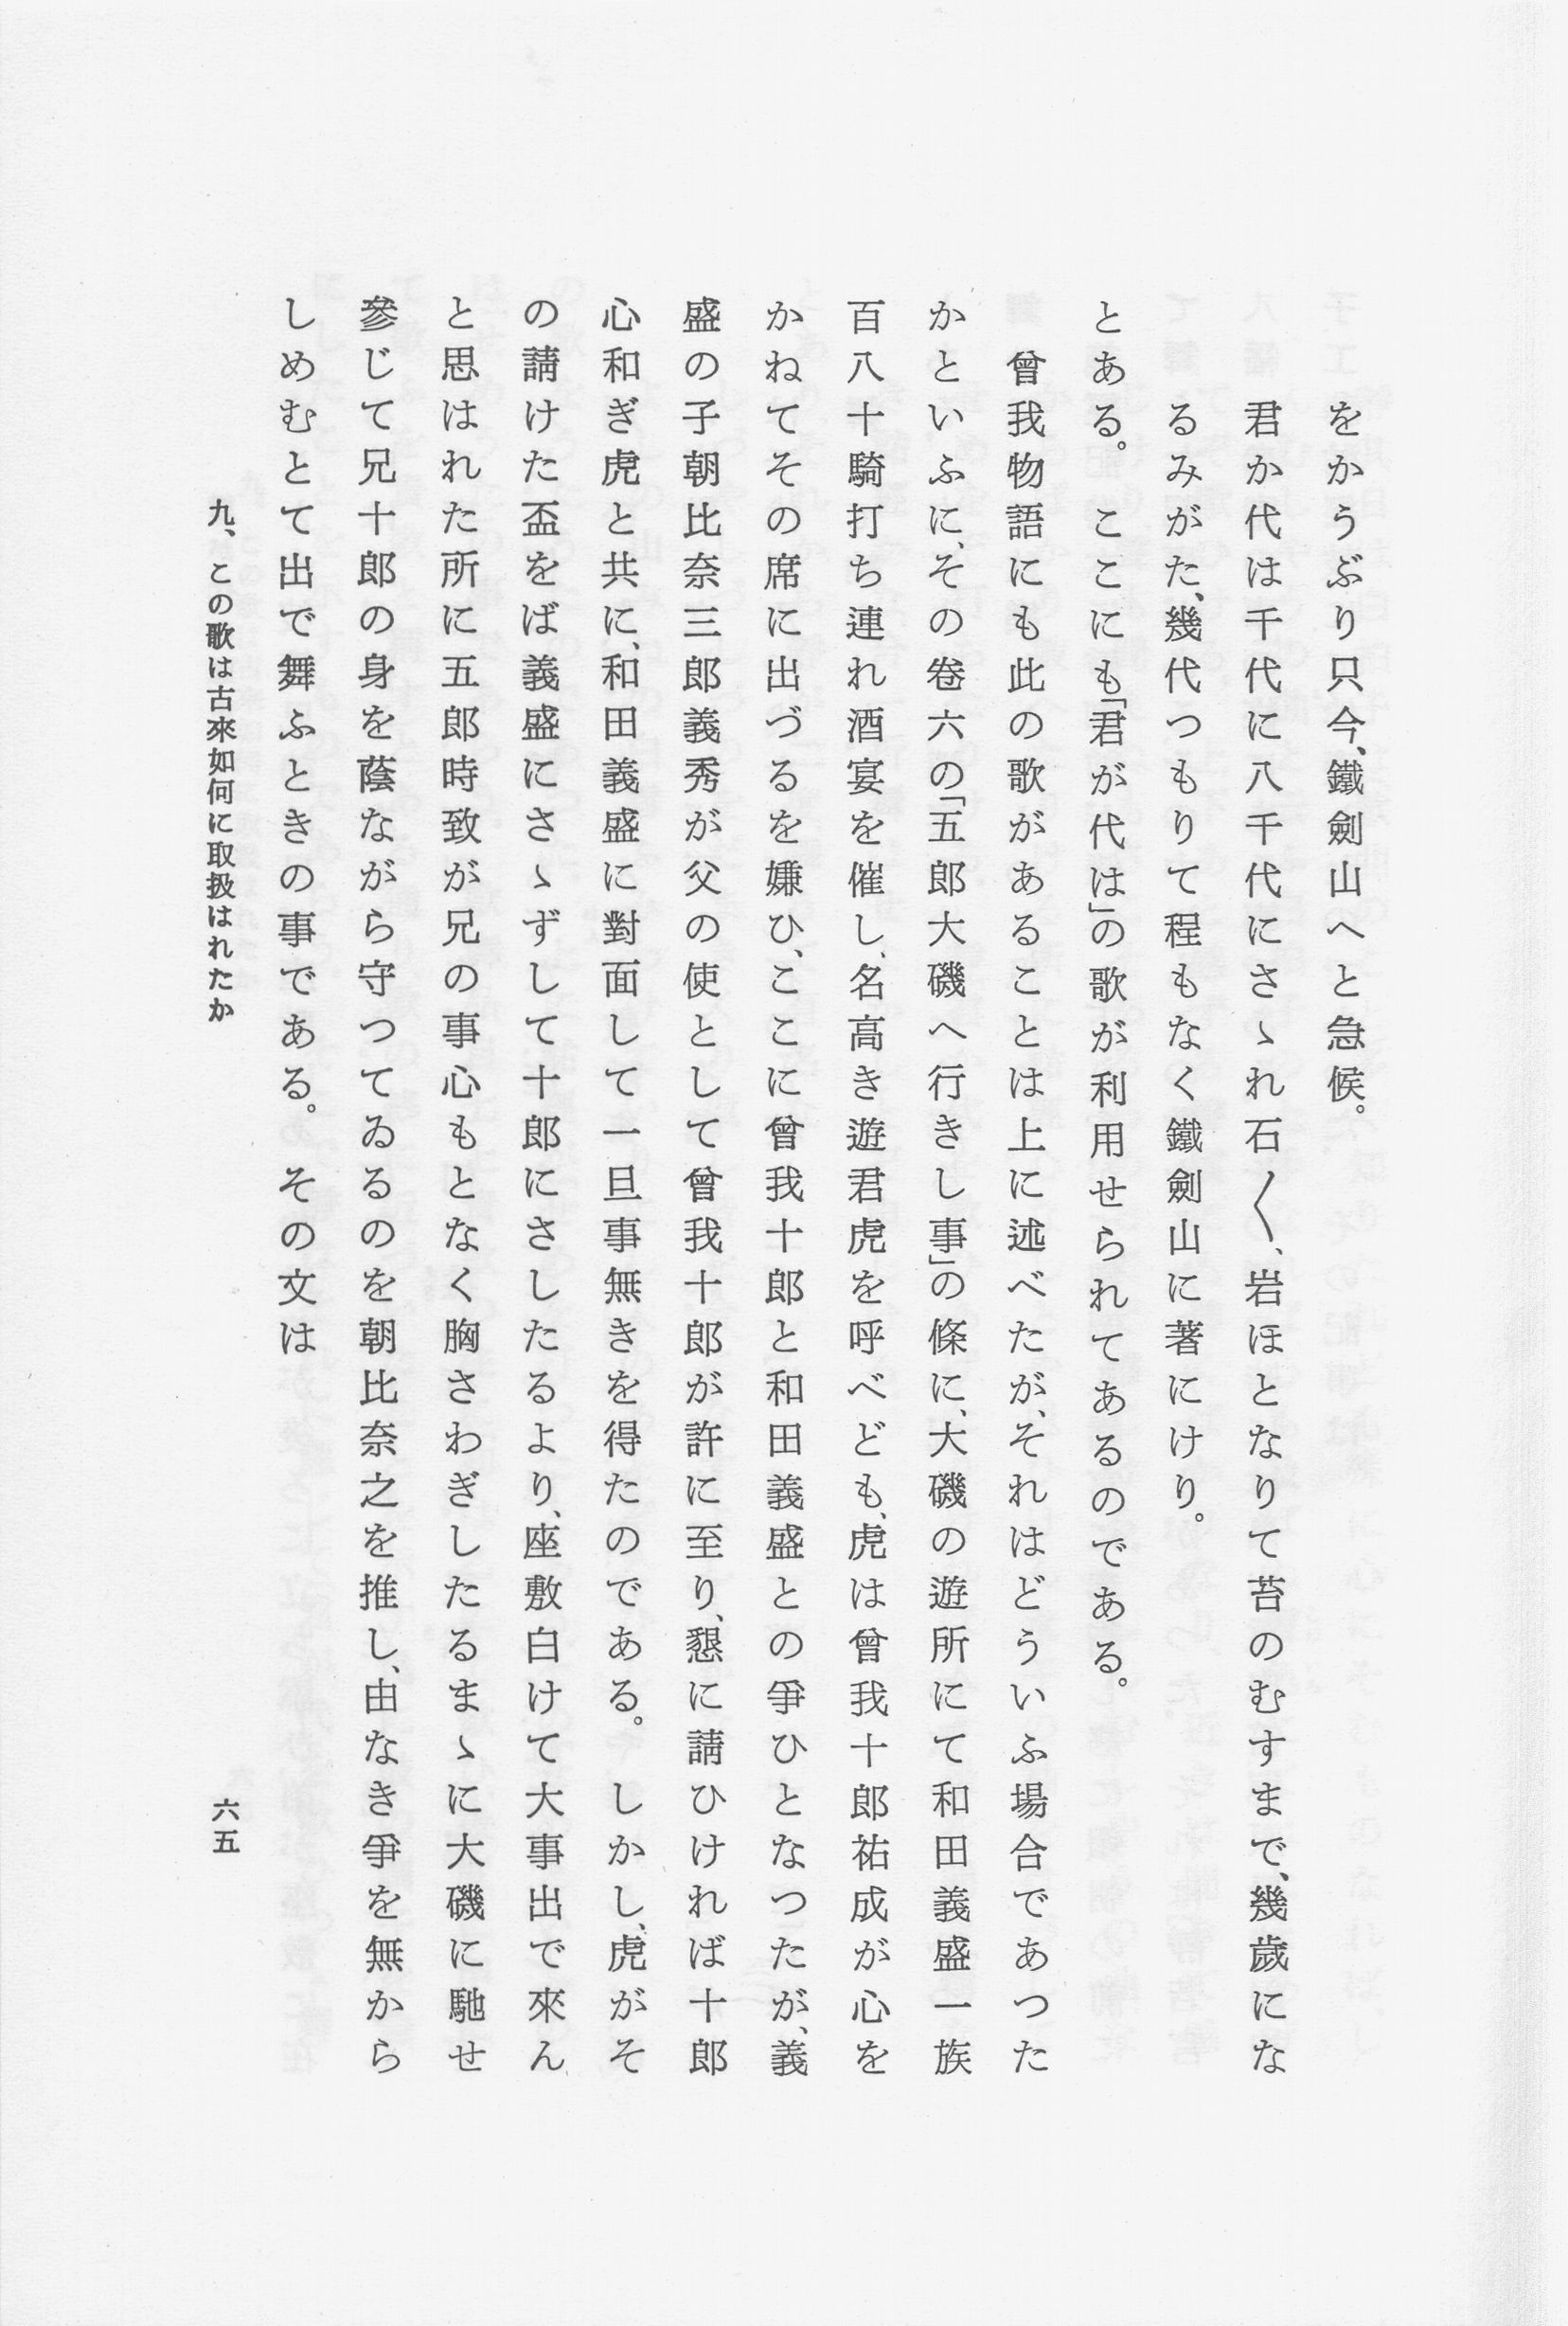 をかうぶり只今、鐵劍山へと急候。
君か代は千代に八千代にさゝれ石〱、岩ほとなりて苔のむすまで、幾歲にな
るみがた、幾代つもりて程もなく鐵劍山に著にけり。
とある。ここにも「君が代は」の歌が利用せられてあるのである。
曾我物語にも此の歌があることは上に述べたが、それはどういふ場合であつた
かといふに、その卷六の「五郎大磯へ行きし事」の條に、大磯の遊所にて和田義盛一族
百八十騎打ち連れ酒宴を催し、名高き遊君虎を呼べども、虎は曾我十郎祐成が心を
かねてその席に出づるを嫌ひ、ここに曾我十郎と和田義盛との爭ひとなつたが、義
盛の子朝比奈三郎義秀が父の使として曾我十郎が許に至り、懇に請ひければ十郎
心和ぎ虎と共に、和田義盛に對面して一旦事無きを得たのである。しかし、虎がそ
の請けた盃をば義盛にさゝずして十郎にさしたるより、座敷白けて大事出で來ん
と思はれた所に五郎時致が兄の事心もとなく胸さわぎしたるまゝに大磯に馳せ
參じて兄十郎の身を蔭ながら守つてゐるのを朝比奈之を推し、由なき爭を無から
しめむとて出で舞ふときの事である。その文は
九、この歌は古來如何に取扱はれたか
六五